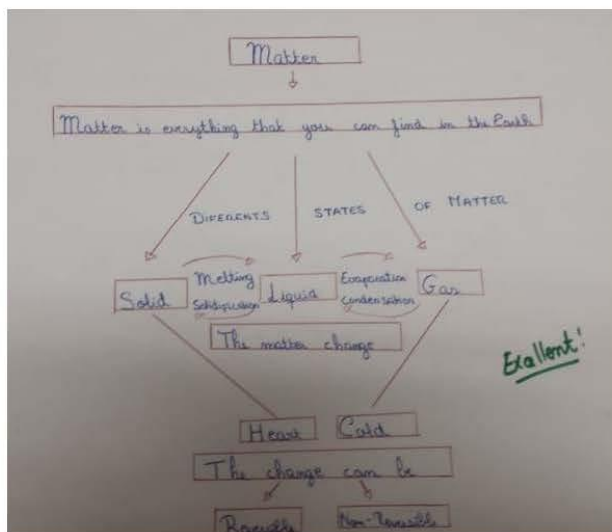 Matter
Matter is everything that you can find in the Earth
DIFERENTS STATES OF MATTER
Melting Evaporation
Solid Solidification Liquid Condensation Gas
The matter change
Exallent!
Heart Cold
The change can be
Reversible Non-Reversible